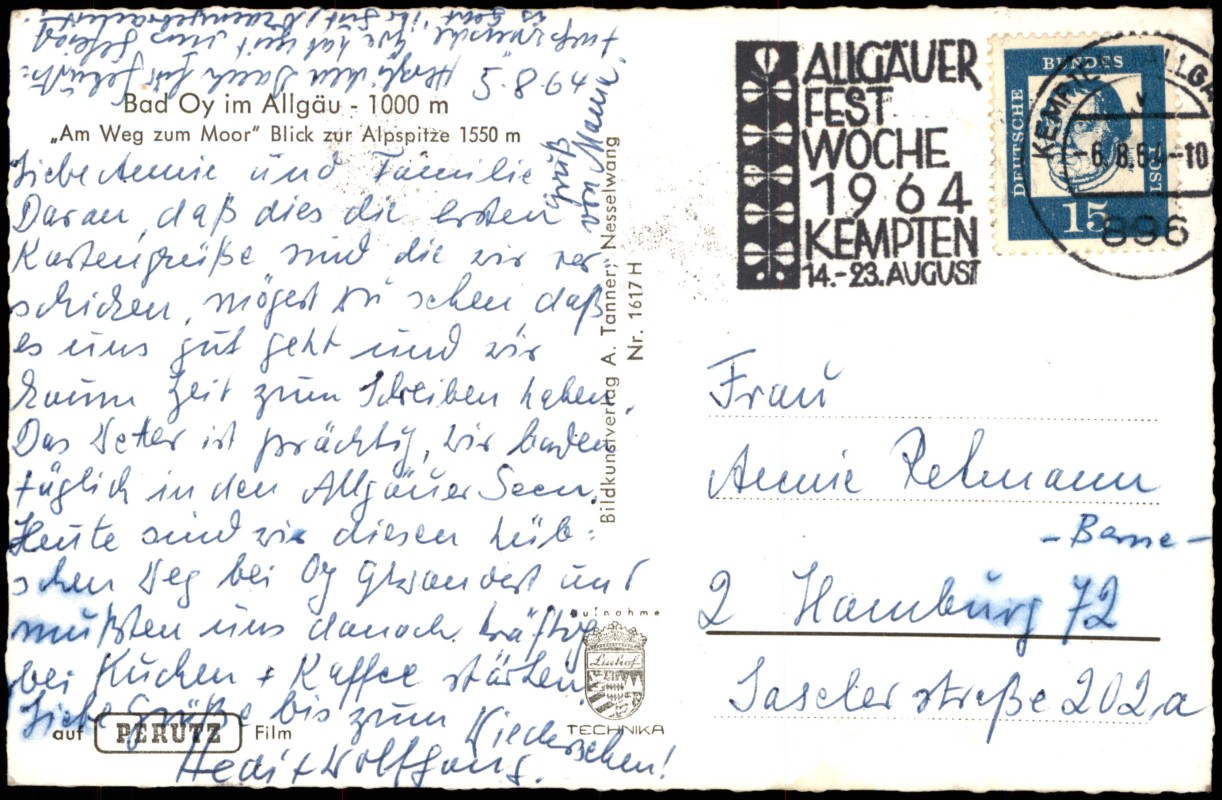 5.8.64 Herzlichen Dank für Geburts=
Bad Oy im Allgäu - 1000 m
„Am Weg zum Moor" Blick zur Alpspitze 1550 m
Liebe Annie und Familie
Daran, daß dies die ersten
Kartengrüße sind die wir ver=
schicken, mögest Du sehen daß
es uns gut geht und wir
kaum Zeit zum Schreiben haben.
Das Wetter ist prächtig, wir baden
täglich in den Allgäuer Seen.
Heute sind wir diesen hüb=
schen Weg bei Oy gewandert und
mußten uns danach kräftig
bei Kuchen + Kaffee stärken.
Liebe Grüße bis zum Wiedersehen!
Hedi + Wolfgang.
Auch von Mama
auf PERUTZ Film
Bildkunstverlag A. Tanner, Nesselwang
Nr. 1617 H
Aufnahme
Linhof
TECHNIKA
ALLGÄUER
FEST
WOCHE
1964
KEMPTEN
14.-23. AUGUST
DEUTSCHE
BUNDES
POST
15
KEMPTEN (ALLGÄ
-6.8.64-10
896
Frau
Annie Rehmann
-Barre-
2 Hamburg 72
Saselerstraße 202a